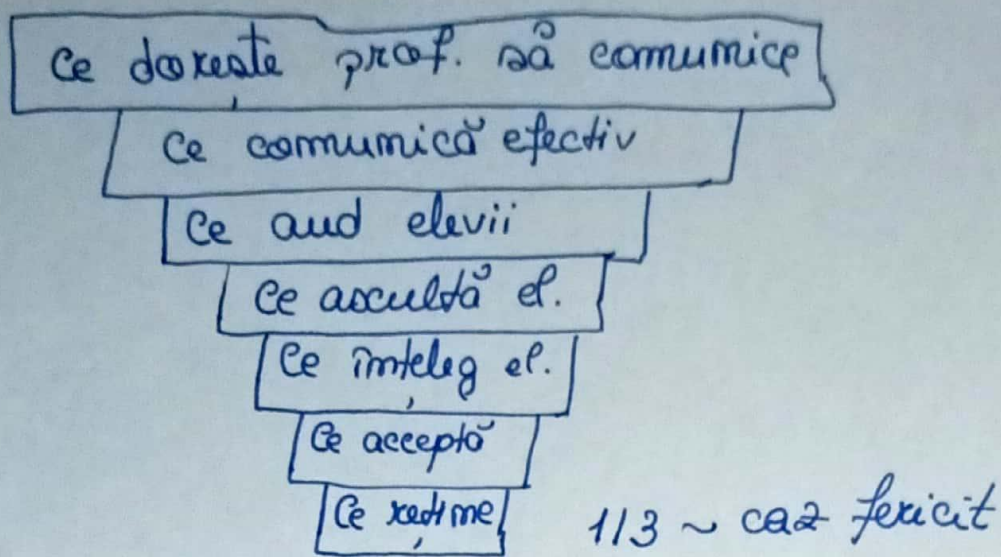 Ce dorește prof. să comunice
Ce comunică efectiv
Ce aud elevii
Ce ascultă el.
Ce înțeleg el.
Ce acceptă
Ce reține 1/3 ~ caz fericit